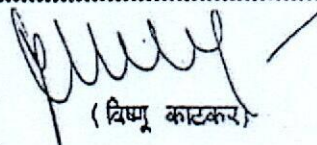 (विष्णू काटकर)